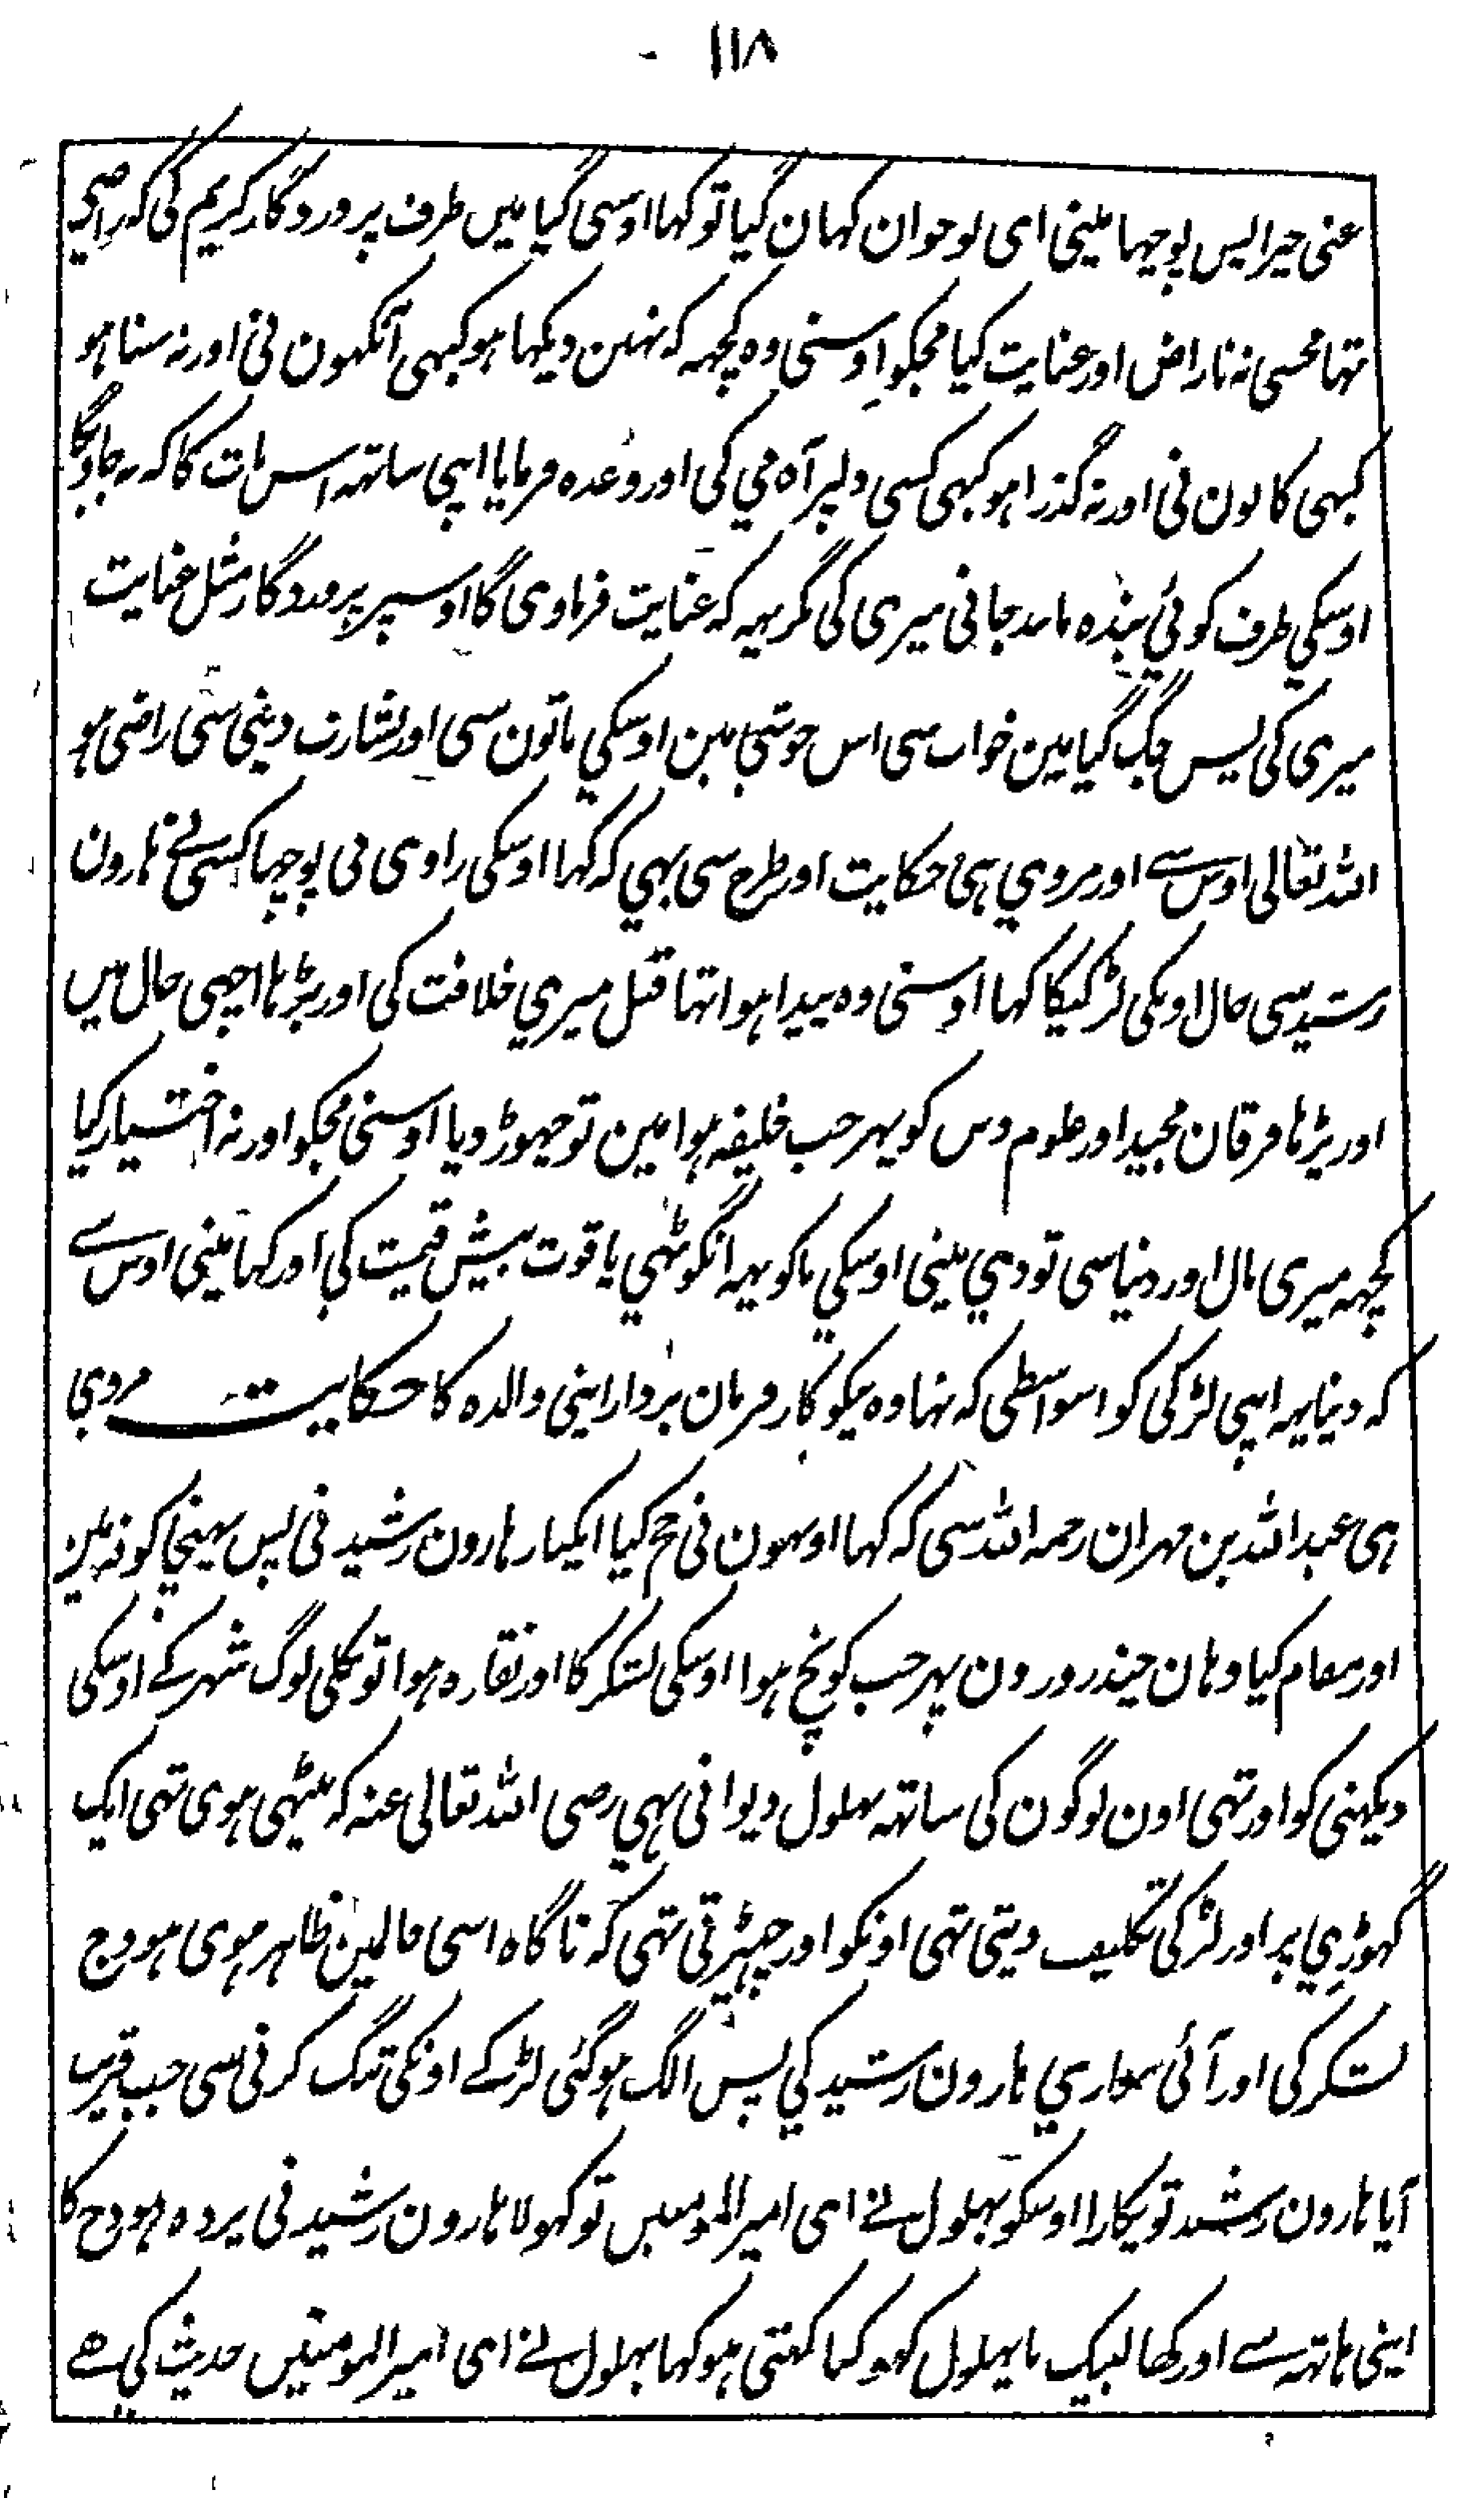 ۱۱۸
عنی خیرا پس پوچہا مینی ای نوجوان کہان گیا تو کہا اوسی گیا میں طرف پروردگار کریم کی کہ راضی
تہا مجسی نہ ناراض اور عنایت کیا مجکو اوسنی وہ کچہہ کہ نہین دیکہا ہو کبہی آنکہون نی اور نہ سنا ہو
کبہی کانون نی اور نہ گذرا ہو کبہی کسی دلپر آدمی کی اور وعدہ فرمایا اپنی ساتہہ اس بات کا کہ نہ جاویگا
اوسکی طرف کوئی بندہ مانند جانی میری کی مگر یہہ کہ عنایت فرماوی گا اوسپر پروردگار مثل عنایت
میری کی پس جگ گیا مین خواب سی اس خوشی مین اوسکی باتون سی اور بشارت دینی سی راضی ہو
اللہ تعالی اوس سے اور مروی ہی حکایت اور طرح سی بہی کہ کہا اوسکی راوی نی پوچہا کسی نے ہارون
رشید سی حال اوسکی لڑکیکا کہا اوسنی وہ پیدا ہوا تہا قبل میری خلافت کی اور بڑہا اچہی حال میں
اور پڑہا فرقان مجید اور علوم دس کو پہر جب خلیفہ ہوا مین تو چہوڑ دیا اوسنی مجکو اور نہ اختیار کیا
کچہہ میری مال اور دنیا سی تو دی مینی اوسکی ماکو یہہ انگوٹہی یاقوت بیش قیمت کی اور کہا مینی اوس سے
کہ دینا یہہ اپنی لڑکی کو اسواسطی کہ تہا وہ نیکوکار فرمان بردار اپنی والدہ کا حکایت مروی
ہی عبد اللہ بن مہران رحمہ اللہ سی کہ کہا اونہون نی حج کیا ایکبار ہارون رشید نی پس پہنچا کوفہ مین
اور مقام کیا وہان چند روز ون پہر جب کونچ ہوا اوسکی لشکر کا اور نقارہ ہوا تو نکلی لوگ شہر کے اوسکی
دیکہنی کو اور تہی اون لوگون کی ساتہہ بہلول دیوانی بہی رضی اللہ تعالی عنہ کہ بیٹہی ہوی تہی ایک
گہوڑی پر اور لڑکی تکلیف دیتی تہی اونکو اور چہیڑتی تہی کہ ناگاہ اسی حالمین ظاہر ہوی ہودج
لشکر کی اور آئی سواری ہارون رشید کی پس الگ ہوگئی لڑکے اونکی تنگ کرنی سی جب قریب
آیا ہارون رشید تو پکارا اوسکو بہلول نے ای امیر المومنین تو کہولا ہارون رشید نی پردہ ہودج کا
اپنی ہاتہہ سے اور کہا لبیک یا بہلول کہو کیا کہتی ہو کہا بہلول نے ای امیر المومنین حدیث کی ہے